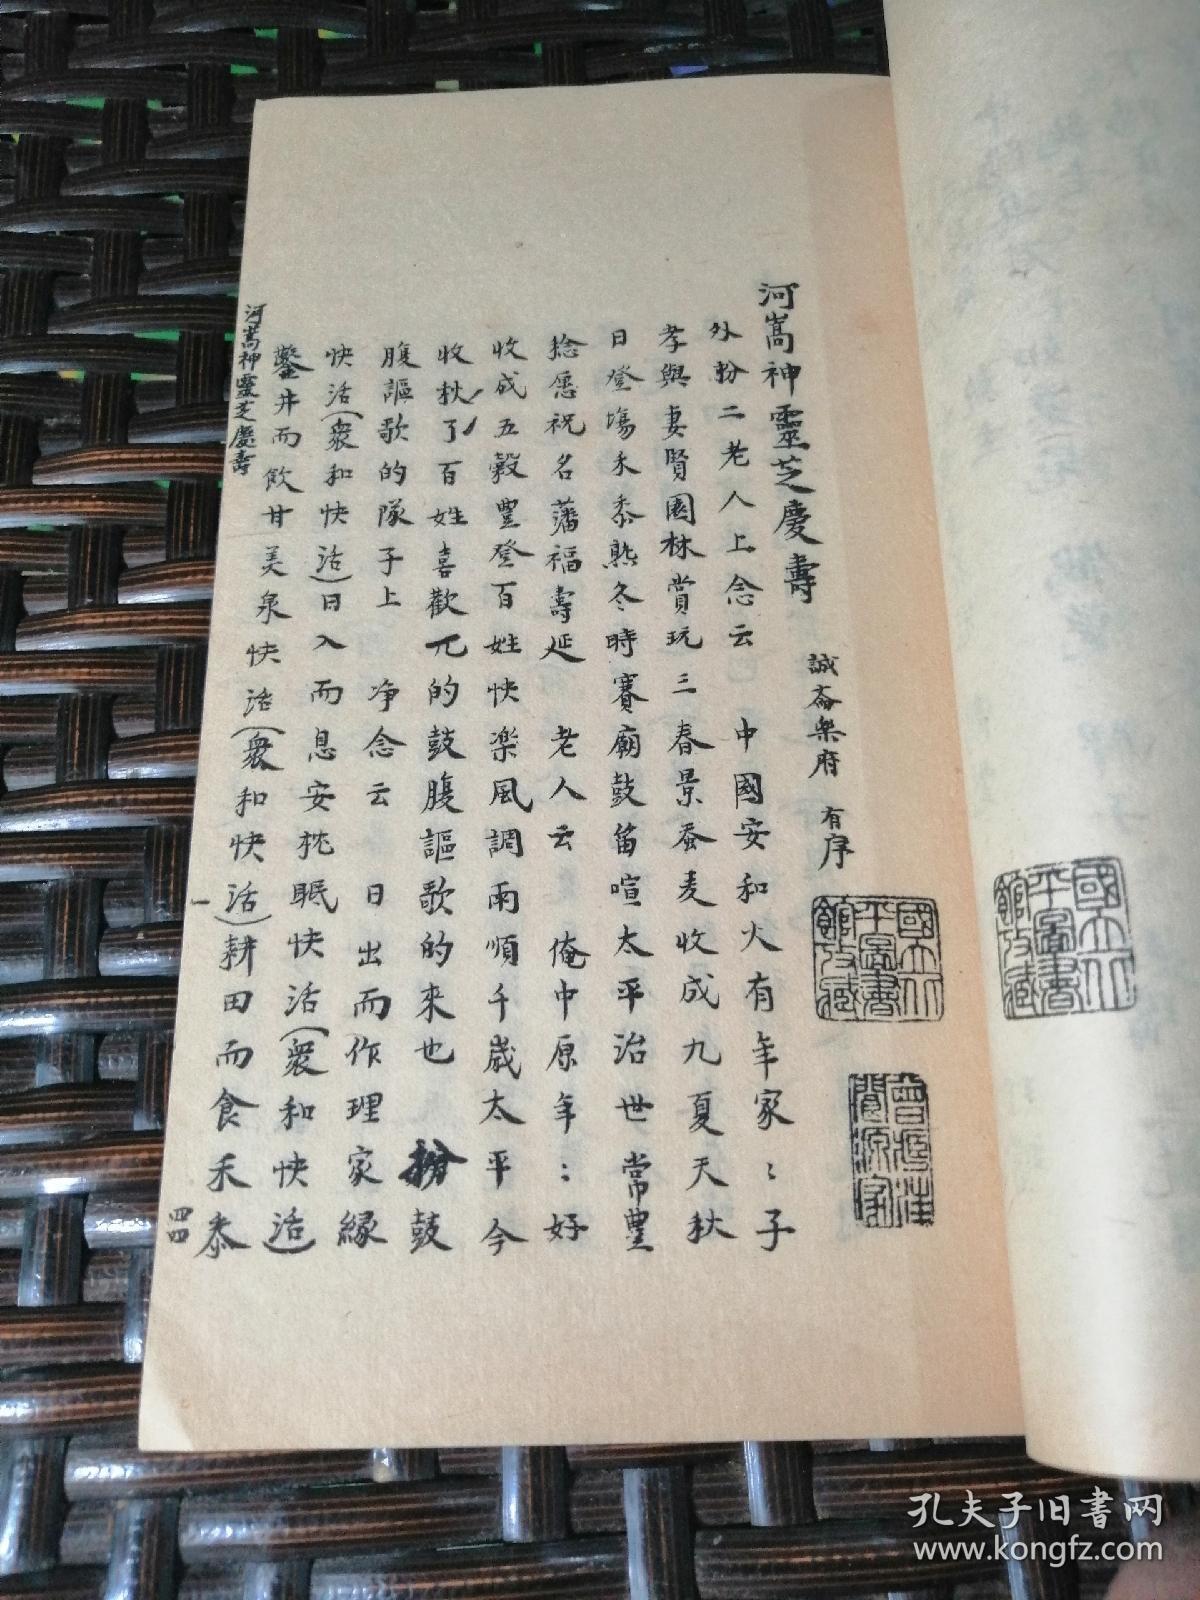 河嵩神靈芝慶壽
誠齋樂府 有序
外扮二老人上念云 中國安和火有年家〻子
孝與妻賢園林賞玩三春景蚕麦收成九夏天秋
日登塲禾黍熟冬時賽廟鼓笛喧太平治世常豐
稔愿祝名藩福壽延 老人云 俺中原年〻好
收成五穀豐登百姓快楽風調雨順千歲太平今
收秋了百姓喜歡兀的鼓腹謳歌的來也 扮鼓
腹謳歌的隊子上 净念云 日出而作理家緣
快活(衆和快活)日入而息安枕眠快活(衆和快活)
鑿井而飲甘美泉快活(衆和快活)耕田而食禾黍
河嵩神靈芝慶壽
一
四四
國立北
平圖書
館收藏
國立北
平圖書
館收藏
孔夫子旧书网
www.kongfz.com